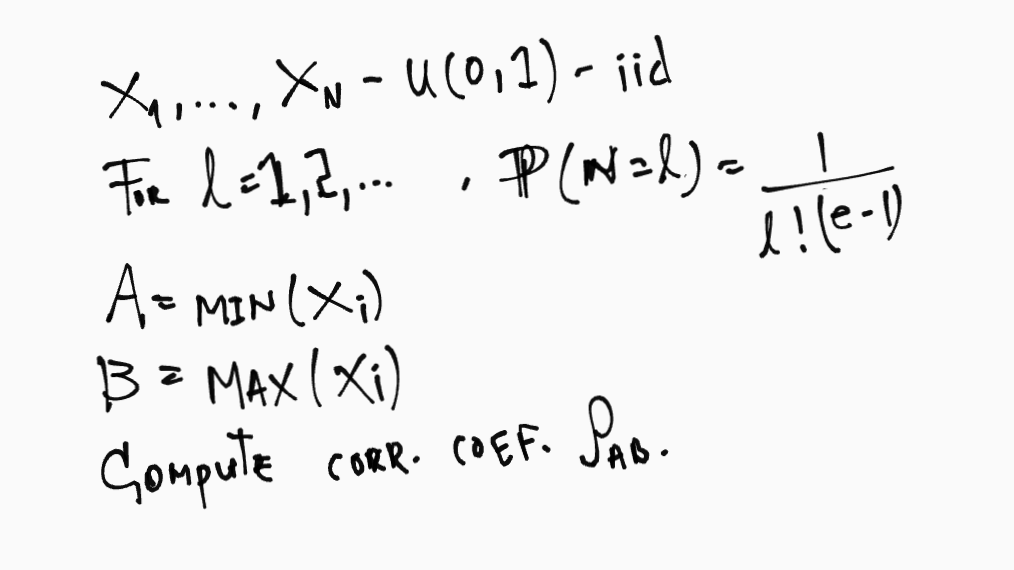 X₁,..., X_N - U(0,1) - iid
FOR l=1,2,... , ℙ(N=l) = 1/(l!(e-1))
A = MIN(Xᵢ)
B = MAX(Xᵢ)
COMPUTE CORR. COEF. ρ_AB.